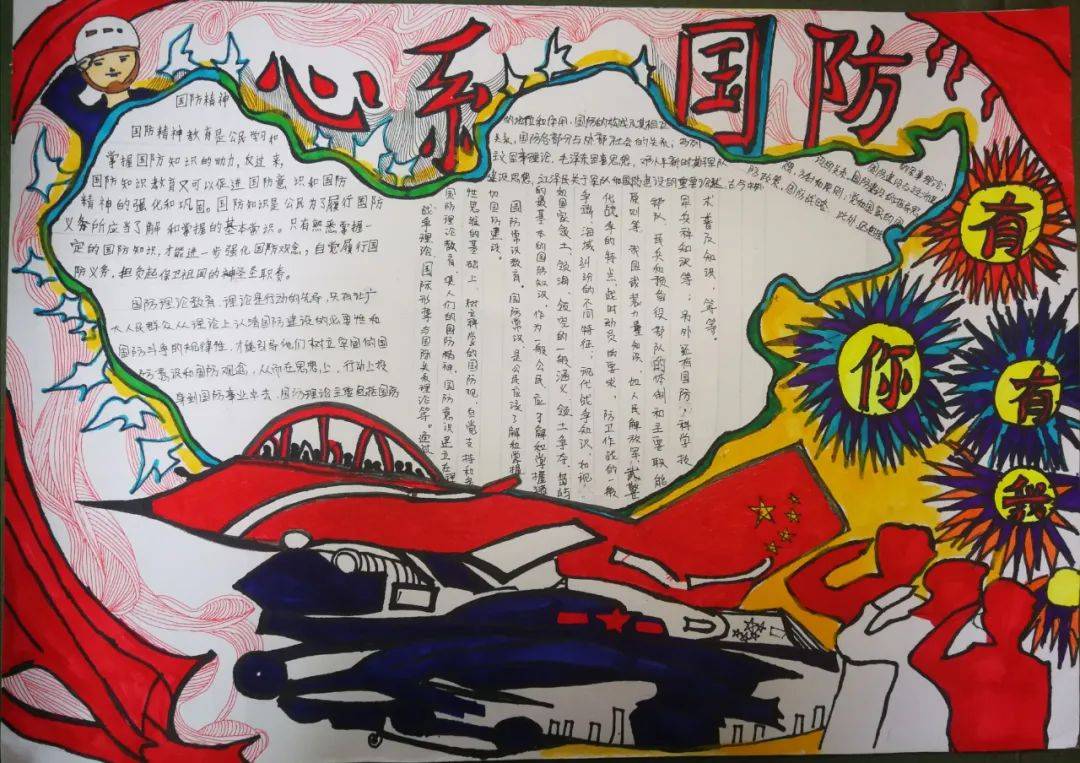 心系国防
国防精神
国防精神教育是公民学习和
掌握国防知识的动力,反过来,
国防知识教育又可以促进国防意识和国防
精神的强化和巩固。国防知识是公民为了履行国防
义务所应当了解和掌握的基本常识。只有熟悉掌握一
定的国防知识,才能进一步强化国防观念,自觉履行国
防义务,担负起保卫祖国的神圣职责。
国防理论教育.理论是行动的先导,只有让广
大人民群众从理论上认清国防建设的必要性和
国防斗争的规律性,才能引导他们树立牢固的国
防意识和国防观念,从而在思想上,行动上投
身到国防事业中去.国防理论主要包括国防
的地位和作用,国防的构成及其相互
关系,国防各部分与外部社会的关系,
军事理论,毛泽东军事思想,邓小平新时期军队
建设思想,江泽民关于军队和国防建设的重要论述,古今中外
战争理论、国际形势与国际关系理论等。通过
国防理论教育,使人们的国防精神、国防意识建立在理
性思维的基础上,树立科学的国防观,自觉支持和
切国防建设。
国防常识教育。国防常识,是公民应该了解和掌握
的最基本的国防知识,作为一般公民,应了解和掌握诸
如国家领土、领海、领空的一般涵义、领土争夺、岛屿
争端、海域纠纷的不同特征;现代战争知识,如现
代战争的特点、战时动员的要求、防卫作战的一般
原则等;我国武装力量知识,如人民解放军、武警
部队、民兵和预备役部队的体制和主要职能
兵种知识等;另外还有国防科学技
术普及知识,等等。
有
你
有
我